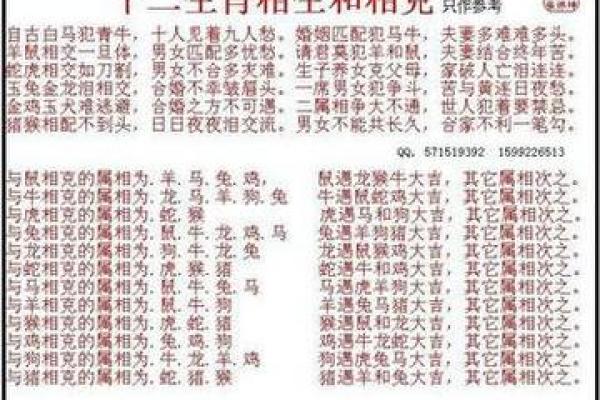 十二生肖相生和相克 只作参考
自古白马犯青牛，十人见着九人愁。婚姻匹配犯马牛，夫妻多难难多头。
羊鼠相交一旦休，男女匹配多忧愁。请君莫犯羊和鼠，夫妻结合终年苦。
蛇虎相交如刀割，男女不合多灾难。生子养女克父母，家破人亡泪连连。
玉兔金龙泪相交，合婚不幸皱眉头。一席男女犯争斗，苦与黄连日夜愁。
金鸡玉犬难逃避，合婚之方不可遇。二属相争大不通，世人犯着要禁忌。
猪猴相配不到头，日日夜夜泪交流。男女不能共长久，合家不利一笔勾。
QQ. 571519392 1599226513
与鼠相克的属相为.羊.马.兔.鸡， 鼠遇龙猴牛大吉，其它属相次之。
与牛相克的属相为.龙.马.羊.狗.兔 牛遇鼠蛇鸡大吉，其它属相次之。
与虎相克的属相为.蛇.猴 虎遇马和狗大吉，其它属相次之。
与兔相克的属相为.鼠.牛.龙.鸡.马 兔遇羊狗猪大吉，其它属相次之。
与龙相克的属相为.狗.牛.龙.兔 龙遇鼠猴鸡大吉，其它属相次之。
与蛇相克的属相为.虎.猴.猪 蛇遇牛和鸡大吉，其它属相次之。
与马相克的属相为.鼠.牛.兔.马 马遇虎羊狗大吉，其它属相次之。
与羊相克的属相为.鼠.牛.狗 羊遇兔马猪大吉，其它属相次之。
与猴相克的属相为.虎.蛇.猪 猴遇鼠和龙大吉，其它属相次之。
与鸡相克的属相为.鸡.兔.狗 鸡遇牛龙蛇大吉，其它属相次之。
与狗相克的属相为.牛.龙.羊.鸡 狗遇虎兔马大吉，其它属相次之。
与猪相克的属相为.蛇.猪.猴 猪遇羊和兔大吉，其它属相次之。